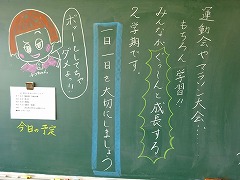 運動会やマラソン大会…
もちろん学習!!
みんながぐ〜んと成長する
2学期です。
一日一日を大切にしましょう
ボーッとしてちゃ
ダメよ!!
今日の予定